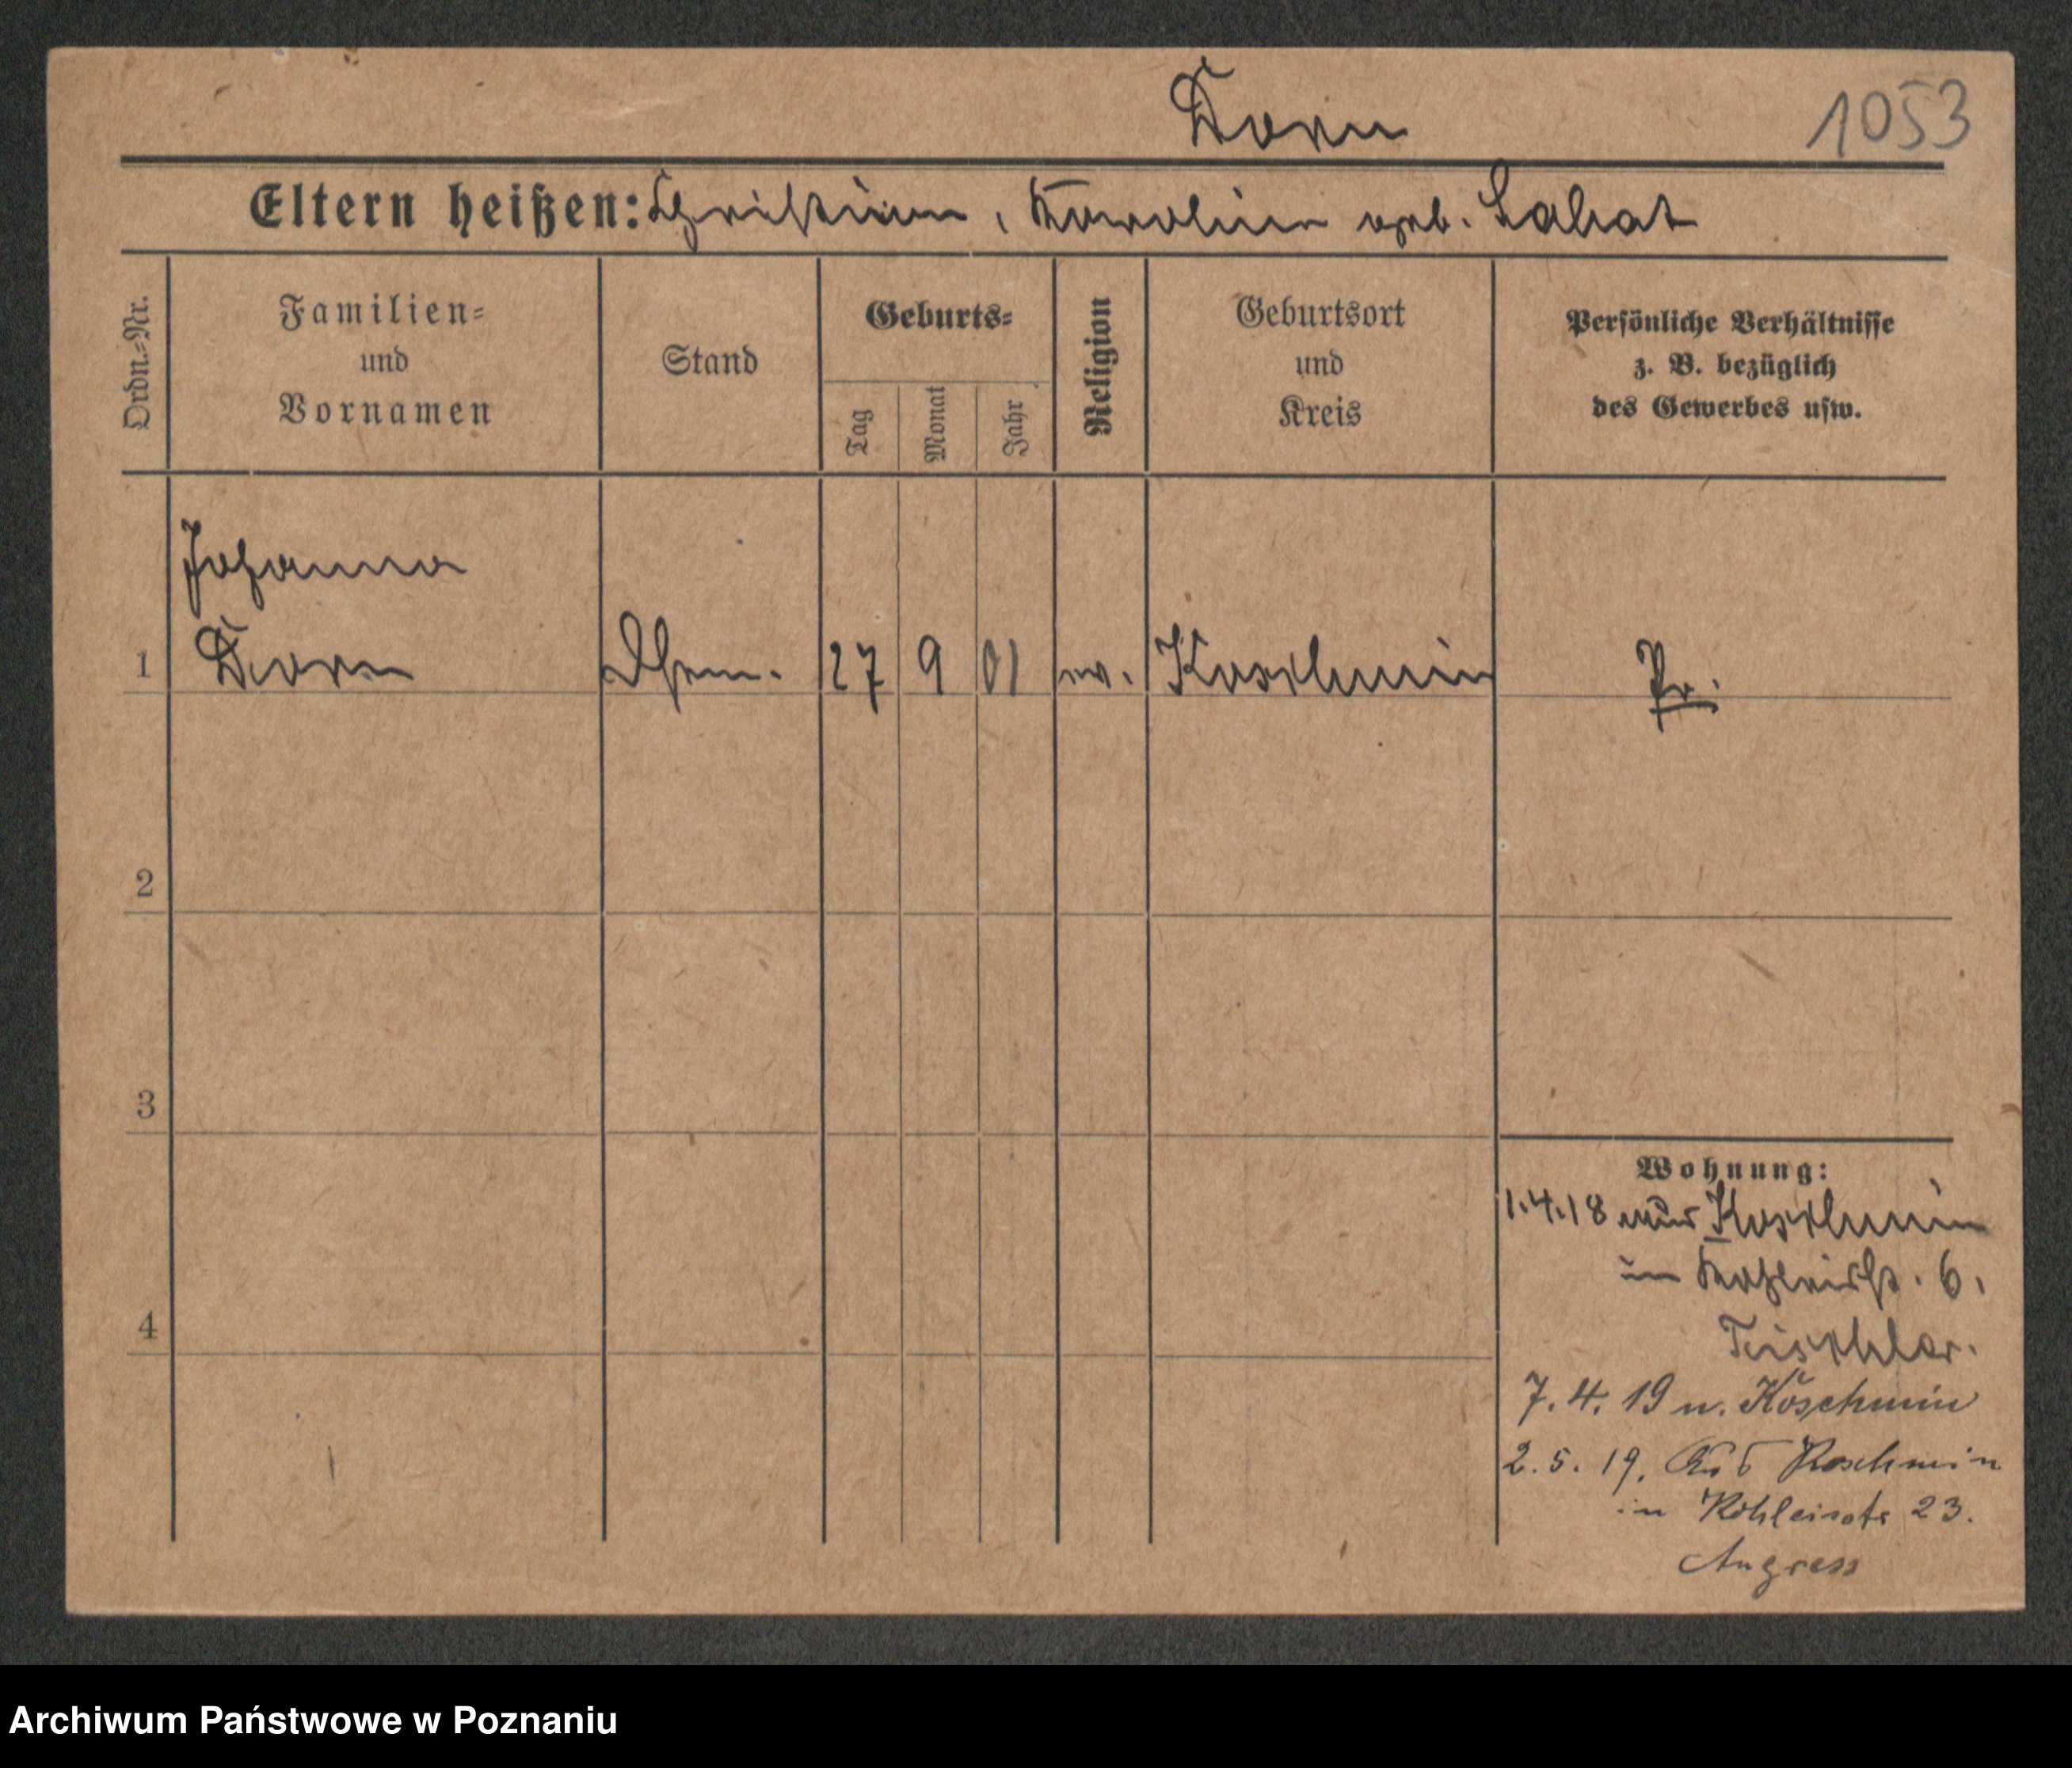 Dorn
1053
Eltern heißen: Christian, Karoline geb. Labat
Ordn.-Nr.
Familien-
und
Vornamen
Stand
Geburts-
Tag
Monat
Jahr
Religion
Geburtsort
und
Kreis
Persönliche Verhältnisse
z. B. bezüglich
des Gewerbes usw.
Johanna
1 Dorn 27 9 01 ev. Koschmin Pr.
2
3
4
Wohnung:
1.4.18 aus Koschmin
in 6.
Tischler.
7. 4. 19 n. Koschmin
2. 5. 19. Aus Koschmin
in Kohleisstr 23.
Angress
Archiwum Państwowe w Poznaniu